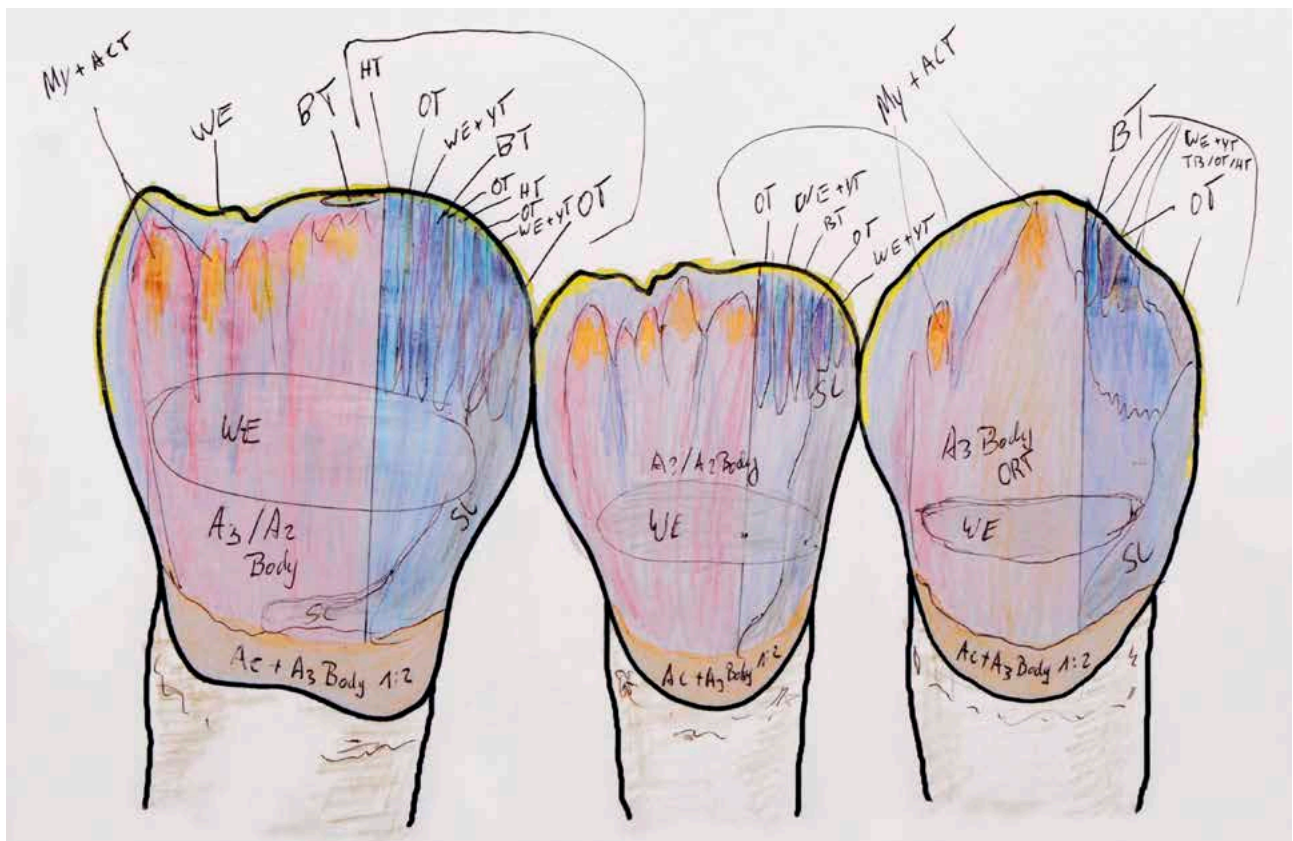 My + ACT
WE
BT
HT
OT
WE + YT
BT
OT HT
OT
WE + YT
OT
WE
A3 / A2
Body
SC
SC
Ac + A3 Body 1:2
OT
WE + YT
BT
OT
WE + YT
SC
A3/A2 Body
WE
Ac + A3 Body 1:2
My + ACT
BT
WE + YT
TB/OT/HT
OT
A3 Body
ORT
WE
SC
Ac + A3 Body 1:2